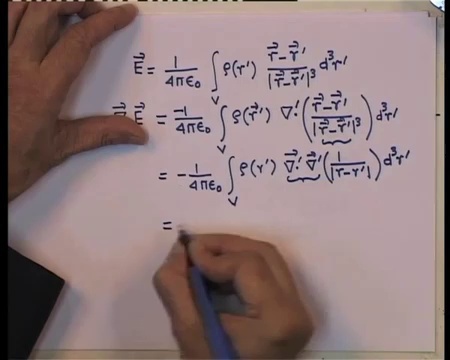 \vec{E} = \frac{1}{4\pi\epsilon_0} \int_V \rho(r') \frac{\vec{r}-\vec{r}'}{|\vec{r}-\vec{r}'|^3} d^3r'
\vec{E} = \frac{-1}{4\pi\epsilon_0} \int_V \rho(\vec{r}') \nabla'\cdot \left( \frac{\vec{r}-\vec{r}'}{|\vec{r}-\vec{r}'|^3} \right) d^3r'
= -\frac{1}{4\pi\epsilon_0} \int_V \rho(r') \vec{\nabla}'\cdot \vec{\nabla}' \left( \frac{1}{|r-r'|} \right) d^3r'
=